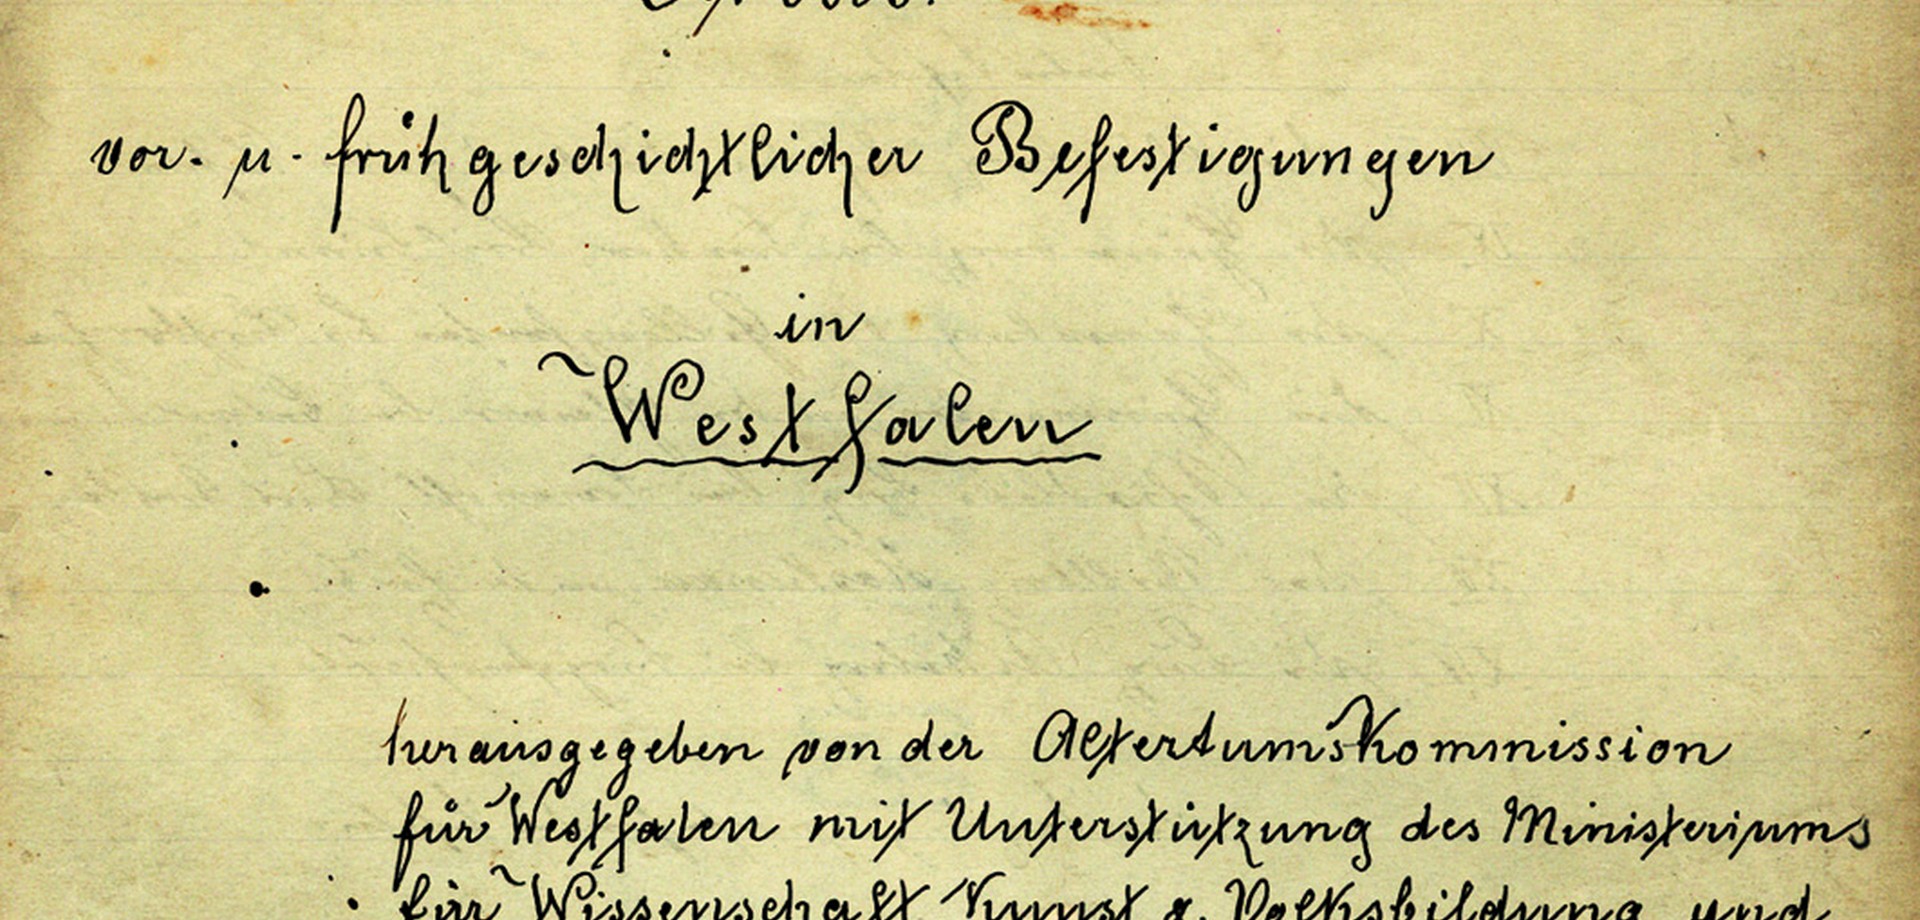 vor- u. frühgeschichtlicher Befestigungen
in
Westfalen
herausgegeben von der Altertumskommission
für Westfalen mit Unterstützung des Ministeriums
für Wissenschaft Kunst u. Volksbildung und